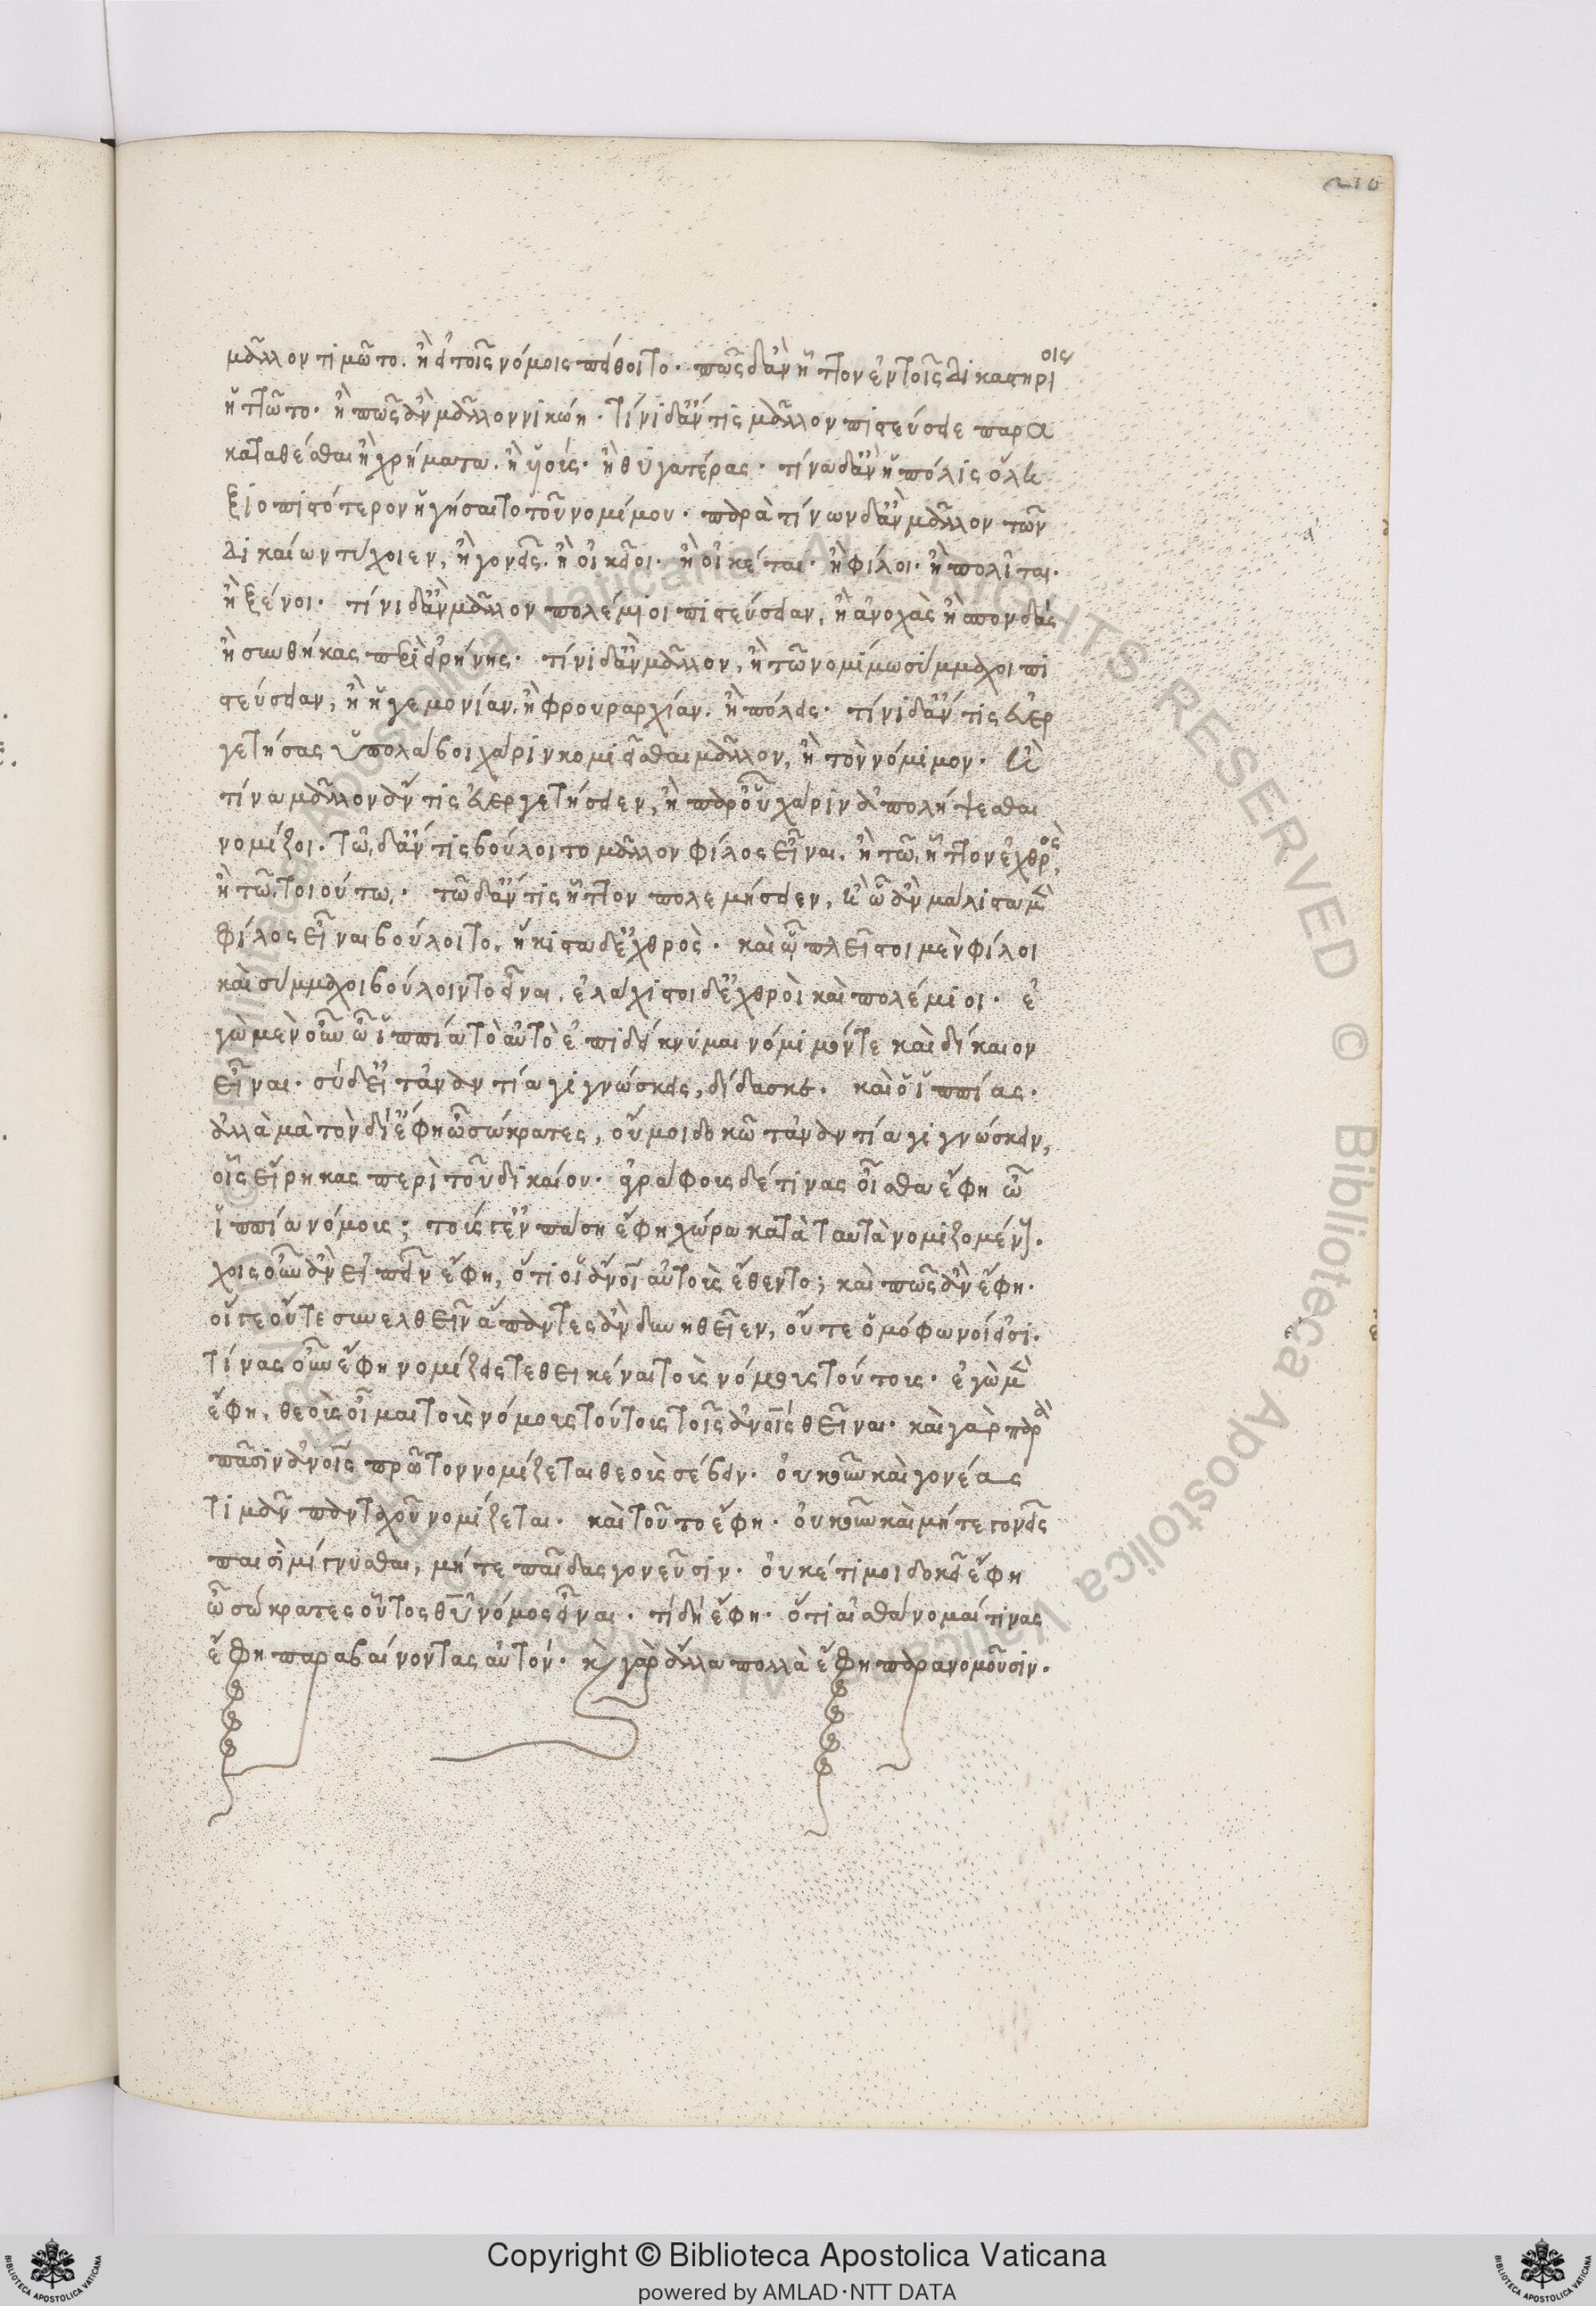 210
μᾶλλον τιμῶτο. ἢ εἰ τοῖς νόμοις πείθοιτο. πῶς δ' ἂν ἧττον ἐν τοῖς δικαστηρίοις
ἡττῶτο. ἢ πῶς ἂν μᾶλλον νικώη. τίνι δ' ἄν τις μᾶλλον πιστεύσειε παρα
καταθέσθαι ἢ χρήματα. ἢ υἱούς. ἢ θυγατέρας. τίνα δ' ἂν ἡ πόλις ὅλη
ξιοπιστότερον ἡγήσαιτο τοῦ νομίμου. παρὰ τίνων δ' ἂν μᾶλλον τῶν
δικαίων τύχοιεν, ἢ γονεῖς. ἢ οἰκεῖοι. ἢ οἰκέται. ἢ φίλοι. ἢ πολῖται.
ἢ ξένοι. τίνι δ' ἂν μᾶλλον πολέμιοι πιστεύσειαν, ἢ ἀνοχὰς ἢ σπονδὰς
ἢ συνθήκας περὶ εἰρήνης. τίνι δ' ἂν μᾶλλον, ἢ τῶ νομίμω σύμμαχοι πι
στεύσειαν, ἢ ἡγεμονίαν. ἢ φρουραρχίαν. ἢ πόλεις. τίνι δ' ἄν τις εὐερ
γετήσας ὑπολάβοι χάριν κομιεῖσθαι μᾶλλον, ἢ τὸν νόμιμον. ἢ
τίνα μᾶλλον ἄν τις εὐεργετήσειεν, ἢ παρ' οὗ χάριν ἀπολήψεσθαι
νομίζοι. τῶ δ' ἄν τις βούλοιτο μᾶλλον φίλος εἶναι. ἢ τῶ ἧττον ἐχθρὸς,
ἢ τῶ τοιούτω. τῶ δ' ἄν τις ἧττον πολεμήσειεν, ἢ ὧ ἂν μάλιστα μὲν
φίλος εἶναι βούλοιτο. ἥκιστα δ' ἐχθρὸς. καὶ ὧ πλεῖστοι μὲν φίλοι
καὶ σύμμαχοι βούλοιντο εἶναι. ἐλάχιστοι δ' ἐχθροὶ καὶ πολέμιοι. ἐ
γὼ μὲν οὖν ὦ ἱππία τὸ αὐτὸ ἐπιδείκνυμαι νόμιμόν τε καὶ δίκαιον
εἶναι. σὺ δ' εἰ τἀναντία γιγνώσκεις, δίδασκε. καὶ ὁ ἱππίας.
ἀλλὰ μὰ τὸν δί' ἔφη ὦ σώκρατες, οὔ μοι δοκῶ τἀναντία γιγνώσκειν,
οἷς εἴρηκας περὶ τοῦ δικαίου. ἀγράφους δέ τινας οἶσθα ἔφη ὦ
ἱππία νόμους; τούς γ' ἐν πάση ἔφη χώρα κατὰ ταυτὰ νομιζομένους.
ἔχοις οὖν ἂν εἰπεῖν ἔφη, ὅτι οἱ ἄνοι αὐτοὺς ἔθεντο; καὶ πῶς ἂν ἔφη.
οἵ γε οὔτε συνελθεῖν ἅπαντες ἂν δυνηθεῖεν, οὔτε ὁμόφωνοί εἰσι.
τίνας οὖν ἔφη νομίζεις τεθεικέναι τοὺς νόμους τούτους. ἐγὼ μὲν
ἔφη, θεοὺς οἶμαι τοὺς νόμους τούτους τοῖς ἀνοις θεῖναι. καὶ γὰρ παρὰ
πᾶσιν ἀνοις πρῶτον νομίζεται θεοὺς σέβειν. οὐκοῦν καὶ γονέας
τιμᾶν πανταχοῦ νομίζεται. καὶ τοῦτο ἔφη. οὐκοῦν καὶ μήτε γονεῖς
παισὶ μίγνυσθαι, μήτε παῖδας γονεῦσιν. οὐκέτι μοι δοκεῖ ἔφη
ὦ σώκρατες οὗτος θυ νόμος εἶναι. τί δή ἔφη. ὅτι αἰσθάνομαί τινας
ἔφη παραβαίνοντας αὐτόν. καὶ γὰρ ἄλλα πολλὰ ἔφη παρανομοῦσιν.
© Biblioteca Apostolica Vaticana ALL RIGHTS RESERVED © Biblioteca Apostolica Vaticana ALL RIGHTS RESERVED
Copyright © Biblioteca Apostolica Vaticana
powered by AMLAD·NTT DATA
BIBLIOTECA APOSTOLICA VATICANA
BIBLIOTECA APOSTOLICA VATICANA